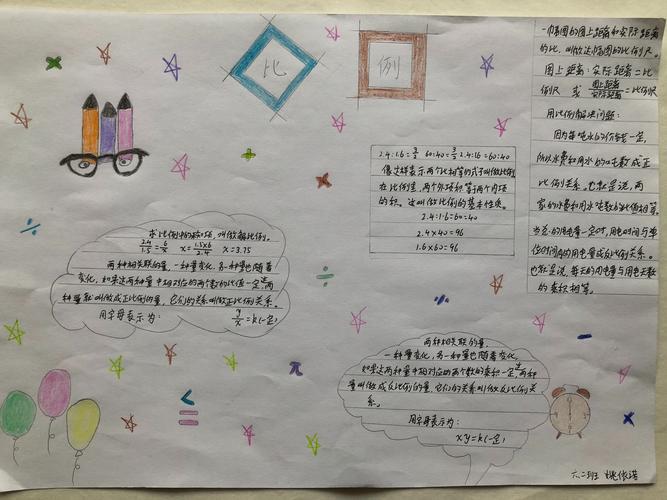 比 例
一幅图的图上距离和实际距离
的比，叫做这幅图的比例尺。
图上距离：实际距离＝比
例尺 或 图上距离/实际距离＝比例尺
用比例解决问题：
因为每吨水的价钱一定，
所以水费和用水的吨数成正
比例关系。也就是说，两
家的水费和用水吨数的比值相等。
当总的用电量一定时，用电时间与单
位时间内的用电量成反比例关系。
也就是说，每天的用电量与用电天数
的乘积相等。
2.4:1.6=3/2 60:40=3/2 2.4:1.6=60:40
像这样表示两个比相等的式子叫做比例
在比例里，两个外项积等于两个内项
的积。这叫做比例的基本性质。
2.4:1.6=60:40
2.4×40=96
1.6×60=96
求比例中的未知项，叫做解比例。
2.4/1.5=6/x x=1.5×6/2.4 x=3.75
两种相关联的量，一种量变化，另一种量也随着
变化，如果这两种量中相对应的两个数的比值一定，这两
种量就叫做成正比例的量，它们的关系叫做正比例关系。
用字母表示为： y/x=k(一定)
两种相关联的量，
一种量变化，另一种量也随着变化，
如果这两种量中相对应的两个数的乘积一定，这两种
量叫做成反比例的量，它们的关系叫做反比例关
系。
用字母表示为：
xy=k(一定)
÷
+
×
÷
÷
π
<
=
×
六二班 姚依诺